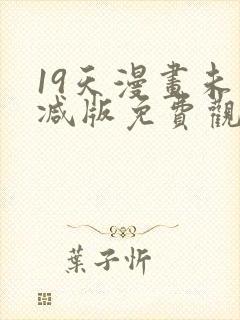 19天漫畫未
减版免費觀
葉子忻